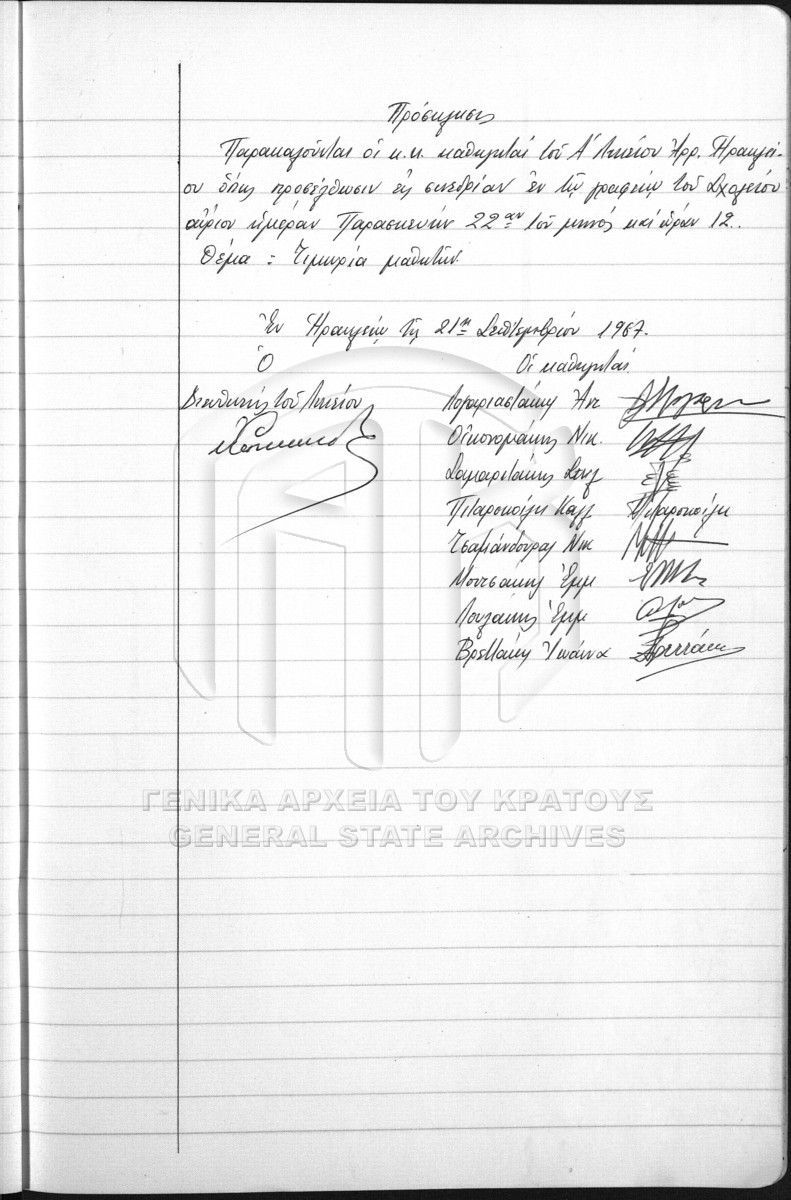 Πρόσκλησις
Παρακαλοῦνται οἱ κ.κ. καθηγηταί τοῦ Α΄ Λυκείου Ἀρρ. Ἡρακλεί-
ου ὅπως προσέλθωσιν εἰς συνεδρίαν ἐν τῷ γραφείῳ τοῦ Σχολείου
αὔριον ἡμέραν Παρασκευήν 22αν τοῦ μηνός καί ὥραν 12..
Θέμα : Τιμωρία μαθητῶν
Ἐν Ἡρακλείῳ τῇ 21ῃ Σεπτεμβρίου 1967.
Ὁ Οἱ καθηγηταί
Διευθυντής τοῦ Λυκείου
Λογαριαστάκη
Οἰκονομάκης Νικ.
Σαμαριτάκης
Πιταροκοίλη Καλλ Πιταροκοίλη
Τσαμάνδουρας Νικ
Μουτσάκης Ἐμμ
Λουλάκης Ἐμμ
Βρεττάκη Ἰωάννα Βρεττάκη
ΓΕΝΙΚΑ ΑΡΧΕΙΑ ΤΟΥ ΚΡΑΤΟΥΣ
GENERAL STATE ARCHIVES